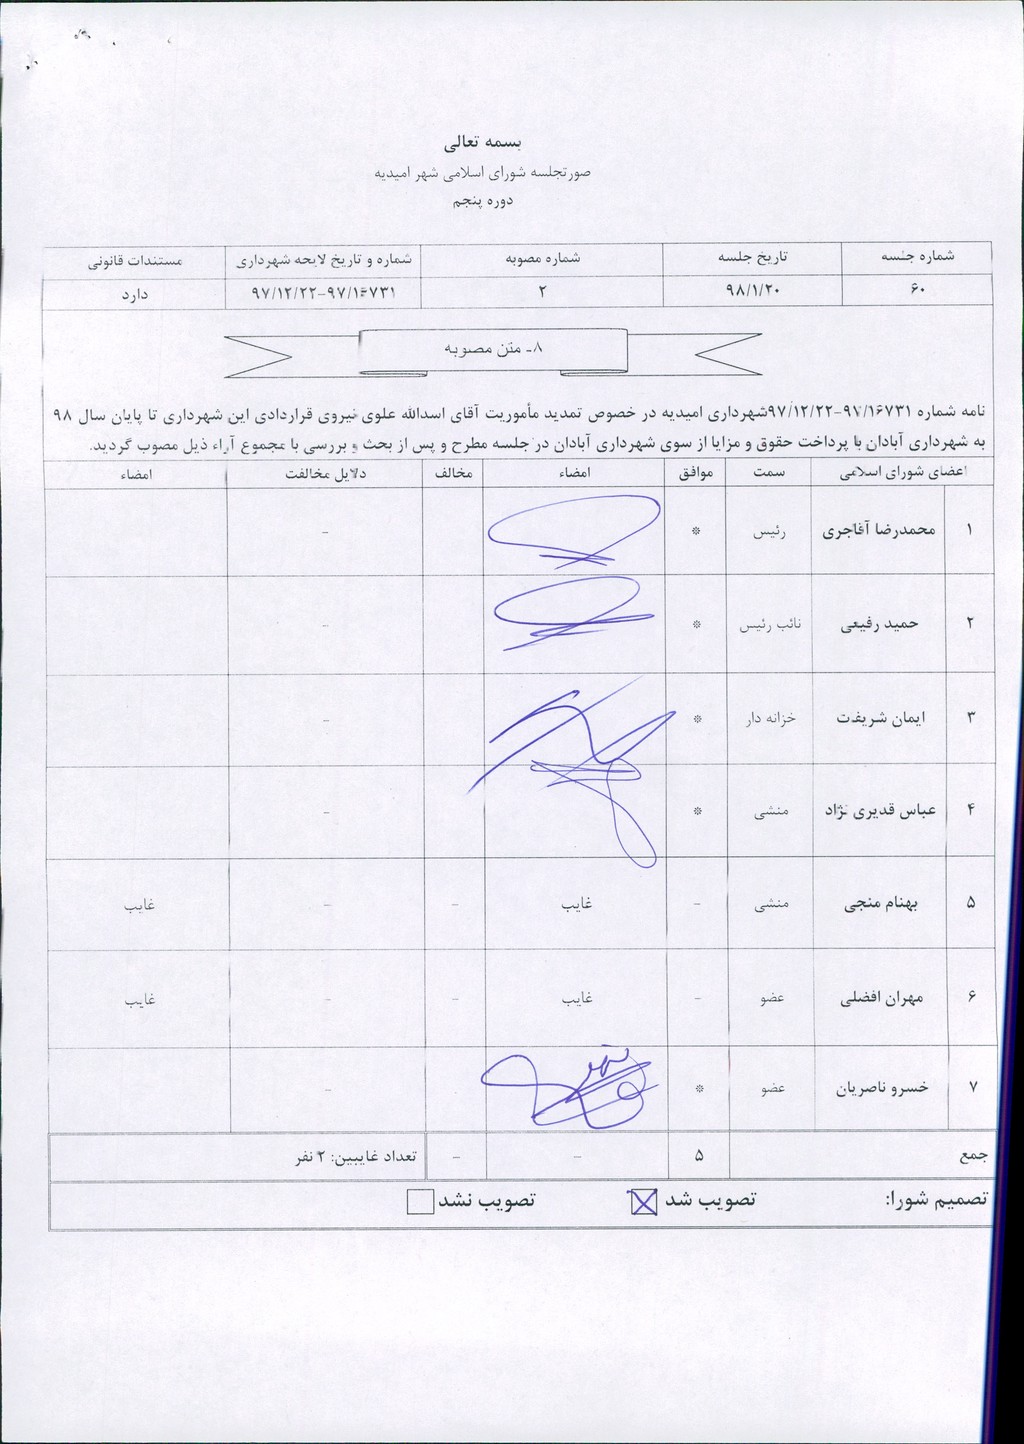 بسمه تعالی
صورتجلسه شورای اسلامی شهر امیدیه
دوره پنجم
شماره جلسه تاریخ جلسه شماره مصوبه شماره و تاریخ لایحه شهرداری مستندات قانونی
۶۰ ۹۸/۱/۲۰ ۲ ۹۷/۱۲/۲۲-۹۷/۱۶۷۳۱ دارد
۸- متن مصوبه
نامه شماره ۹۷/۱۲/۲۲-۹۷/۱۶۷۳۱شهرداری امیدیه در خصوص تمدید مأموریت آقای اسدالله علوی نیروی قراردادی این شهرداری تا پایان سال ۹۸
به شهرداری آبادان با پرداخت حقوق و مزایا از سوی شهرداری آبادان در جلسه مطرح و پس از بحث و بررسی با مجموع آراء ذیل مصوب گردید.
اعضای شورای اسلامی سمت موافق امضاء مخالف دلایل مخالفت امضاء
۱ محمدرضا آقاجری رئیس * -
۲ حمید رفیعی نائب رئیس * -
۳ ایمان شریفت خزانه دار * -
۴ عباس قدیری نژاد منشی * -
۵ بهنام منجی منشی - غایب - - غایب
۶ مهران افضلی عضو - غایب - - غایب
۷ خسرو ناصریان عضو * -
جمع ۵ - - تعداد غایبین: ۲ نفر
تصمیم شورا: تصویب شد تصویب نشد